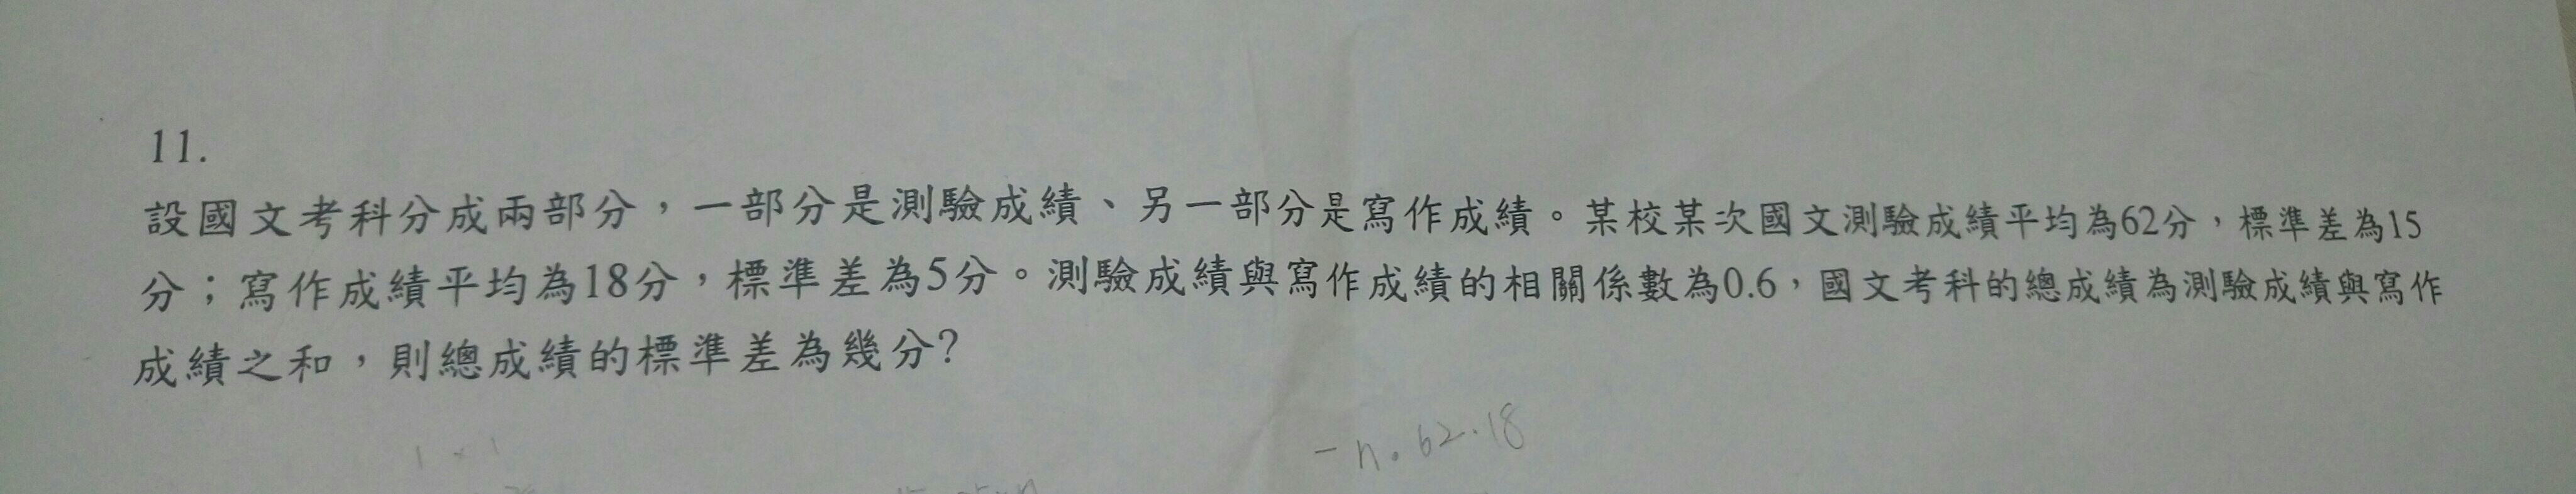 11.
設國文考科分成兩部分，一部分是測驗成績、另一部分是寫作成績。某校某次國文測驗成績平均為62分，標準差為15
分；寫作成績平均為18分，標準差為5分。測驗成績與寫作成績的相關係數為0.6，國文考科的總成績為測驗成績與寫作
成績之和，則總成績的標準差為幾分?
- n . 62 . 18